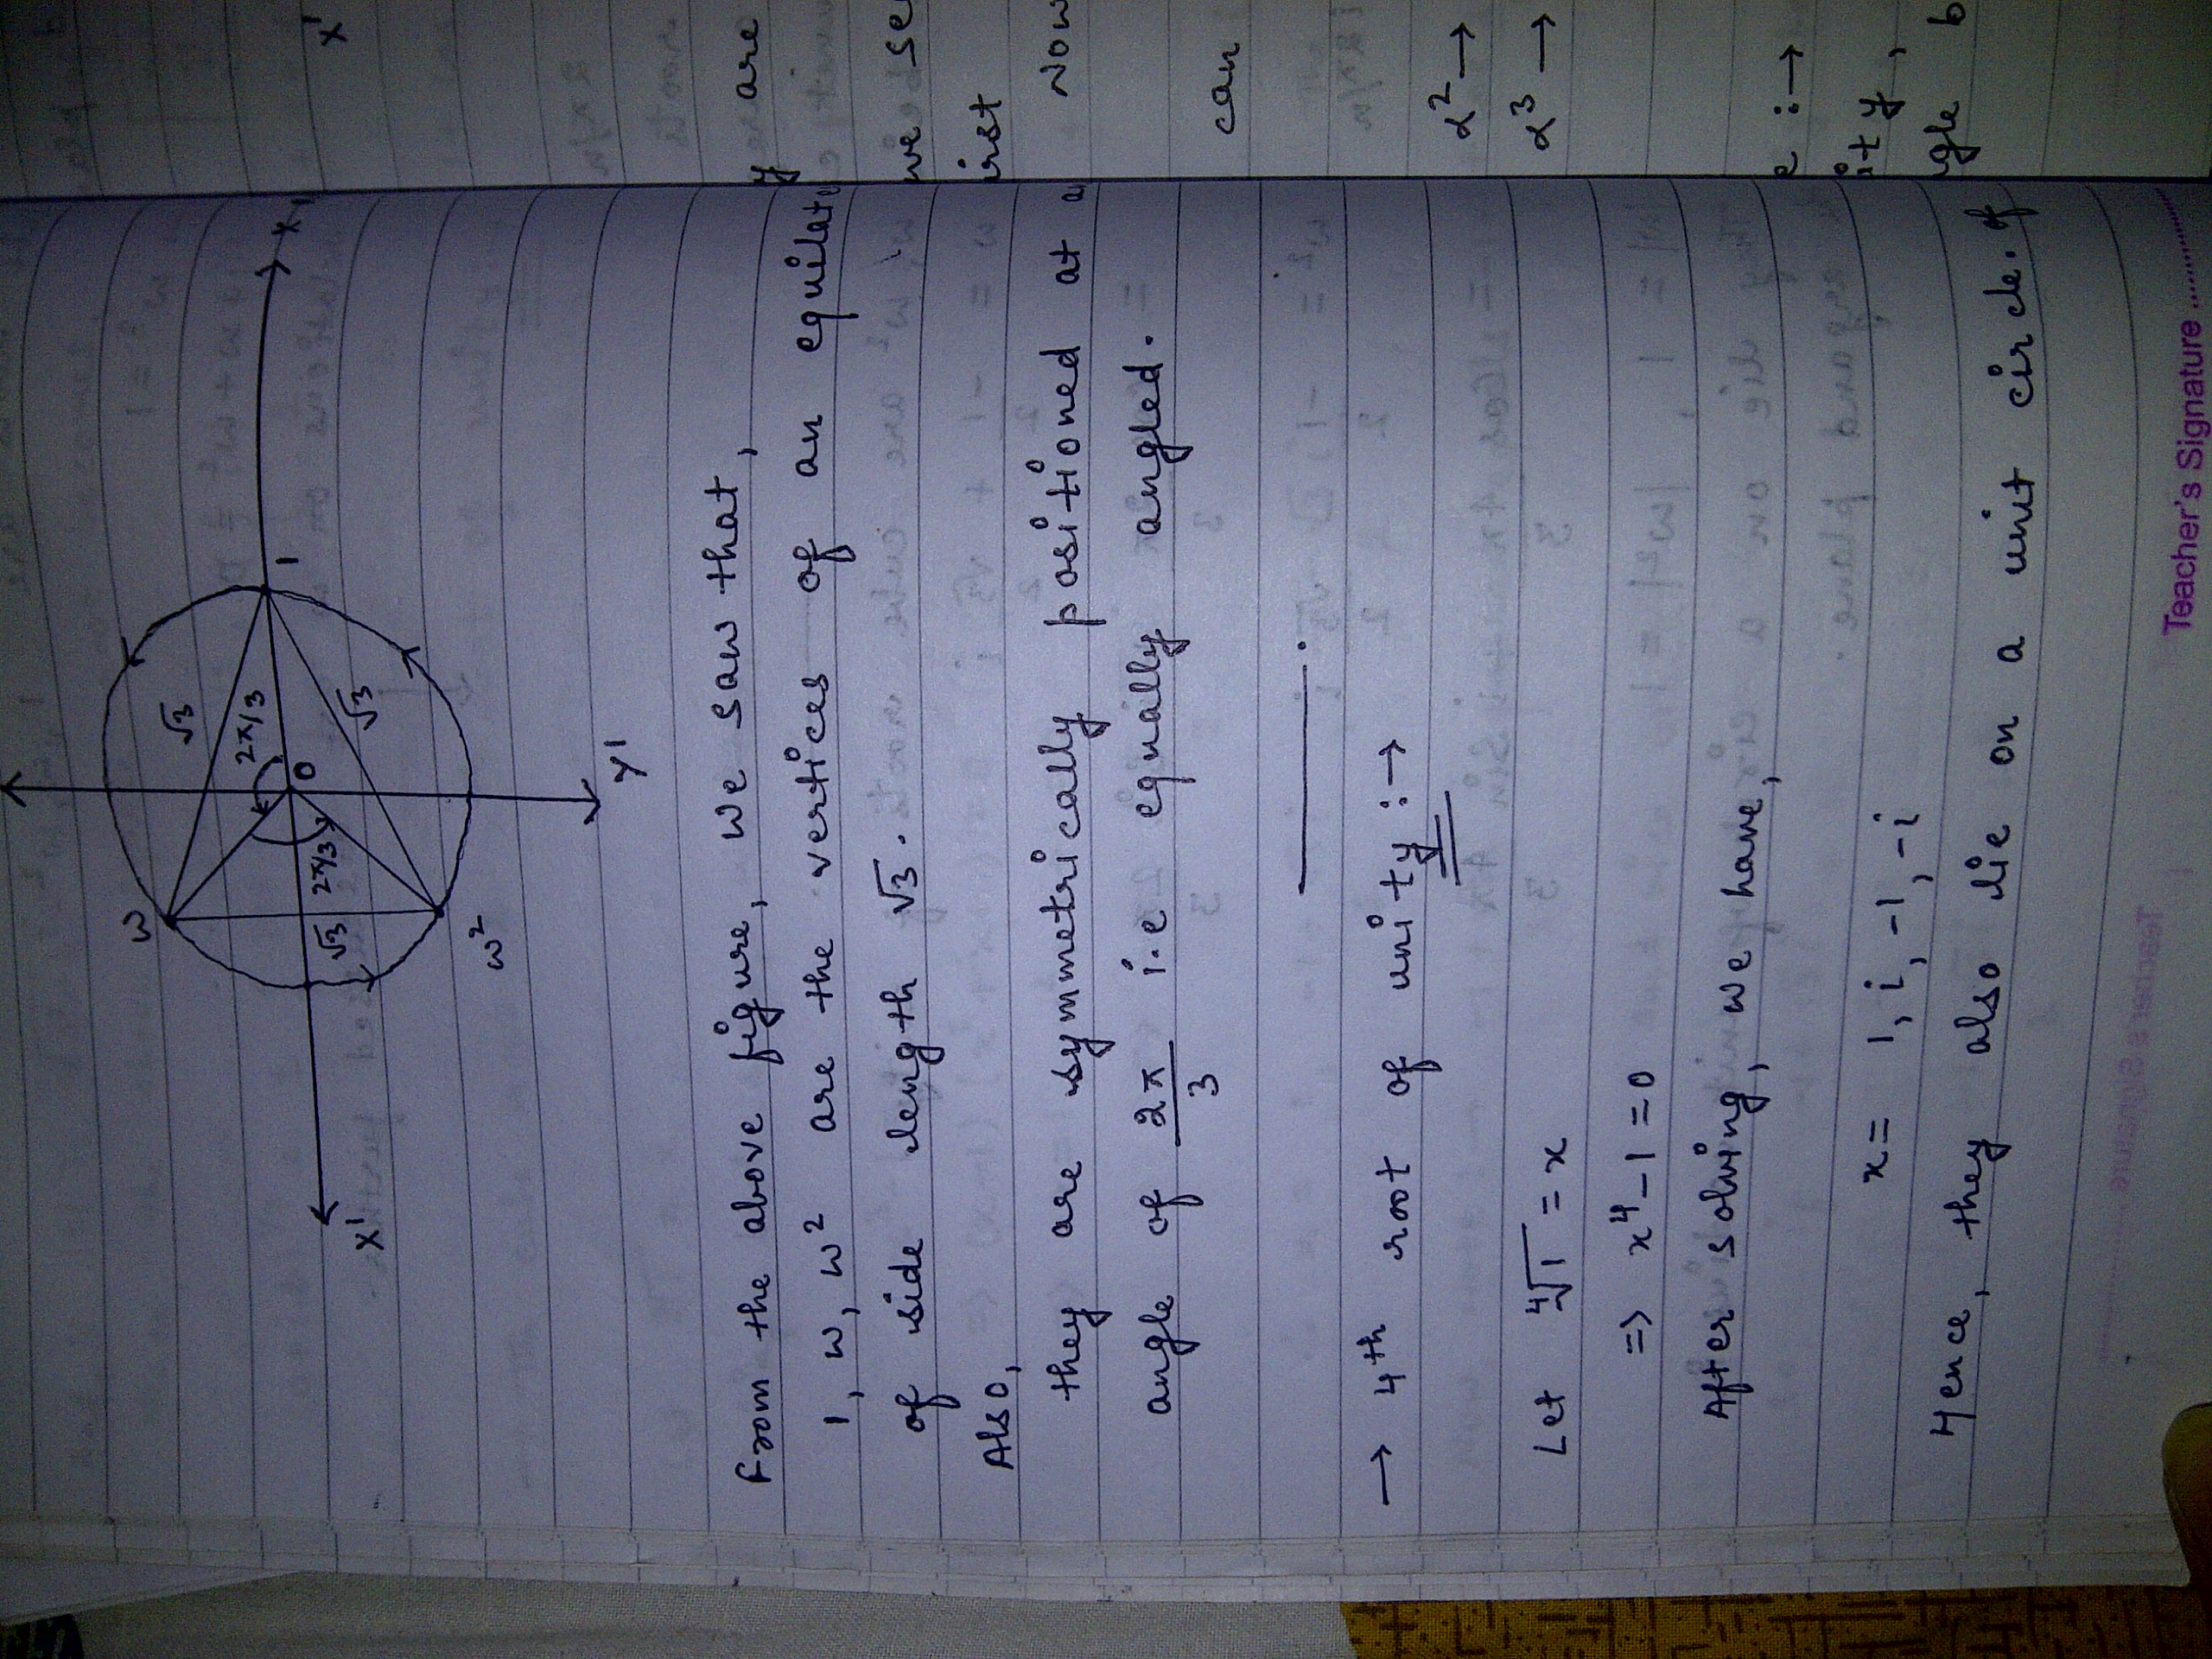 ω
√3
2π/3
0
1
X
√3
2π/3
√3
X'
X'
ω²
Y'
From the above figure, we saw that,
1, ω, ω² are the vertices of an equilate
of side length √3.
Also,
they are symmetrically positioned at a
angle of 2π/3 i.e equally angled.
→ 4th root of unity :→
Let ∜1 = x
=> x⁴-1 = 0
After solving, we have,
x = 1, i, -1, -i
Hence, they also lie on a unit circle. of
Teacher's Signature
y are
we se
irst
Now
can
α² →
α³ →
e :→
ity,
gle b